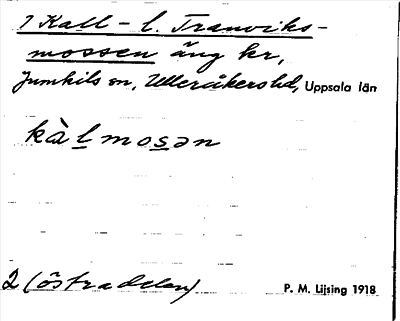 1 Kall- l. Tranviks-
mossen äng kr,
Jumkils sn, Ulleråkers hd, Uppsala län
kàl̲mos̲ən
2 (östra delen)
P. M. Lijsing 1918